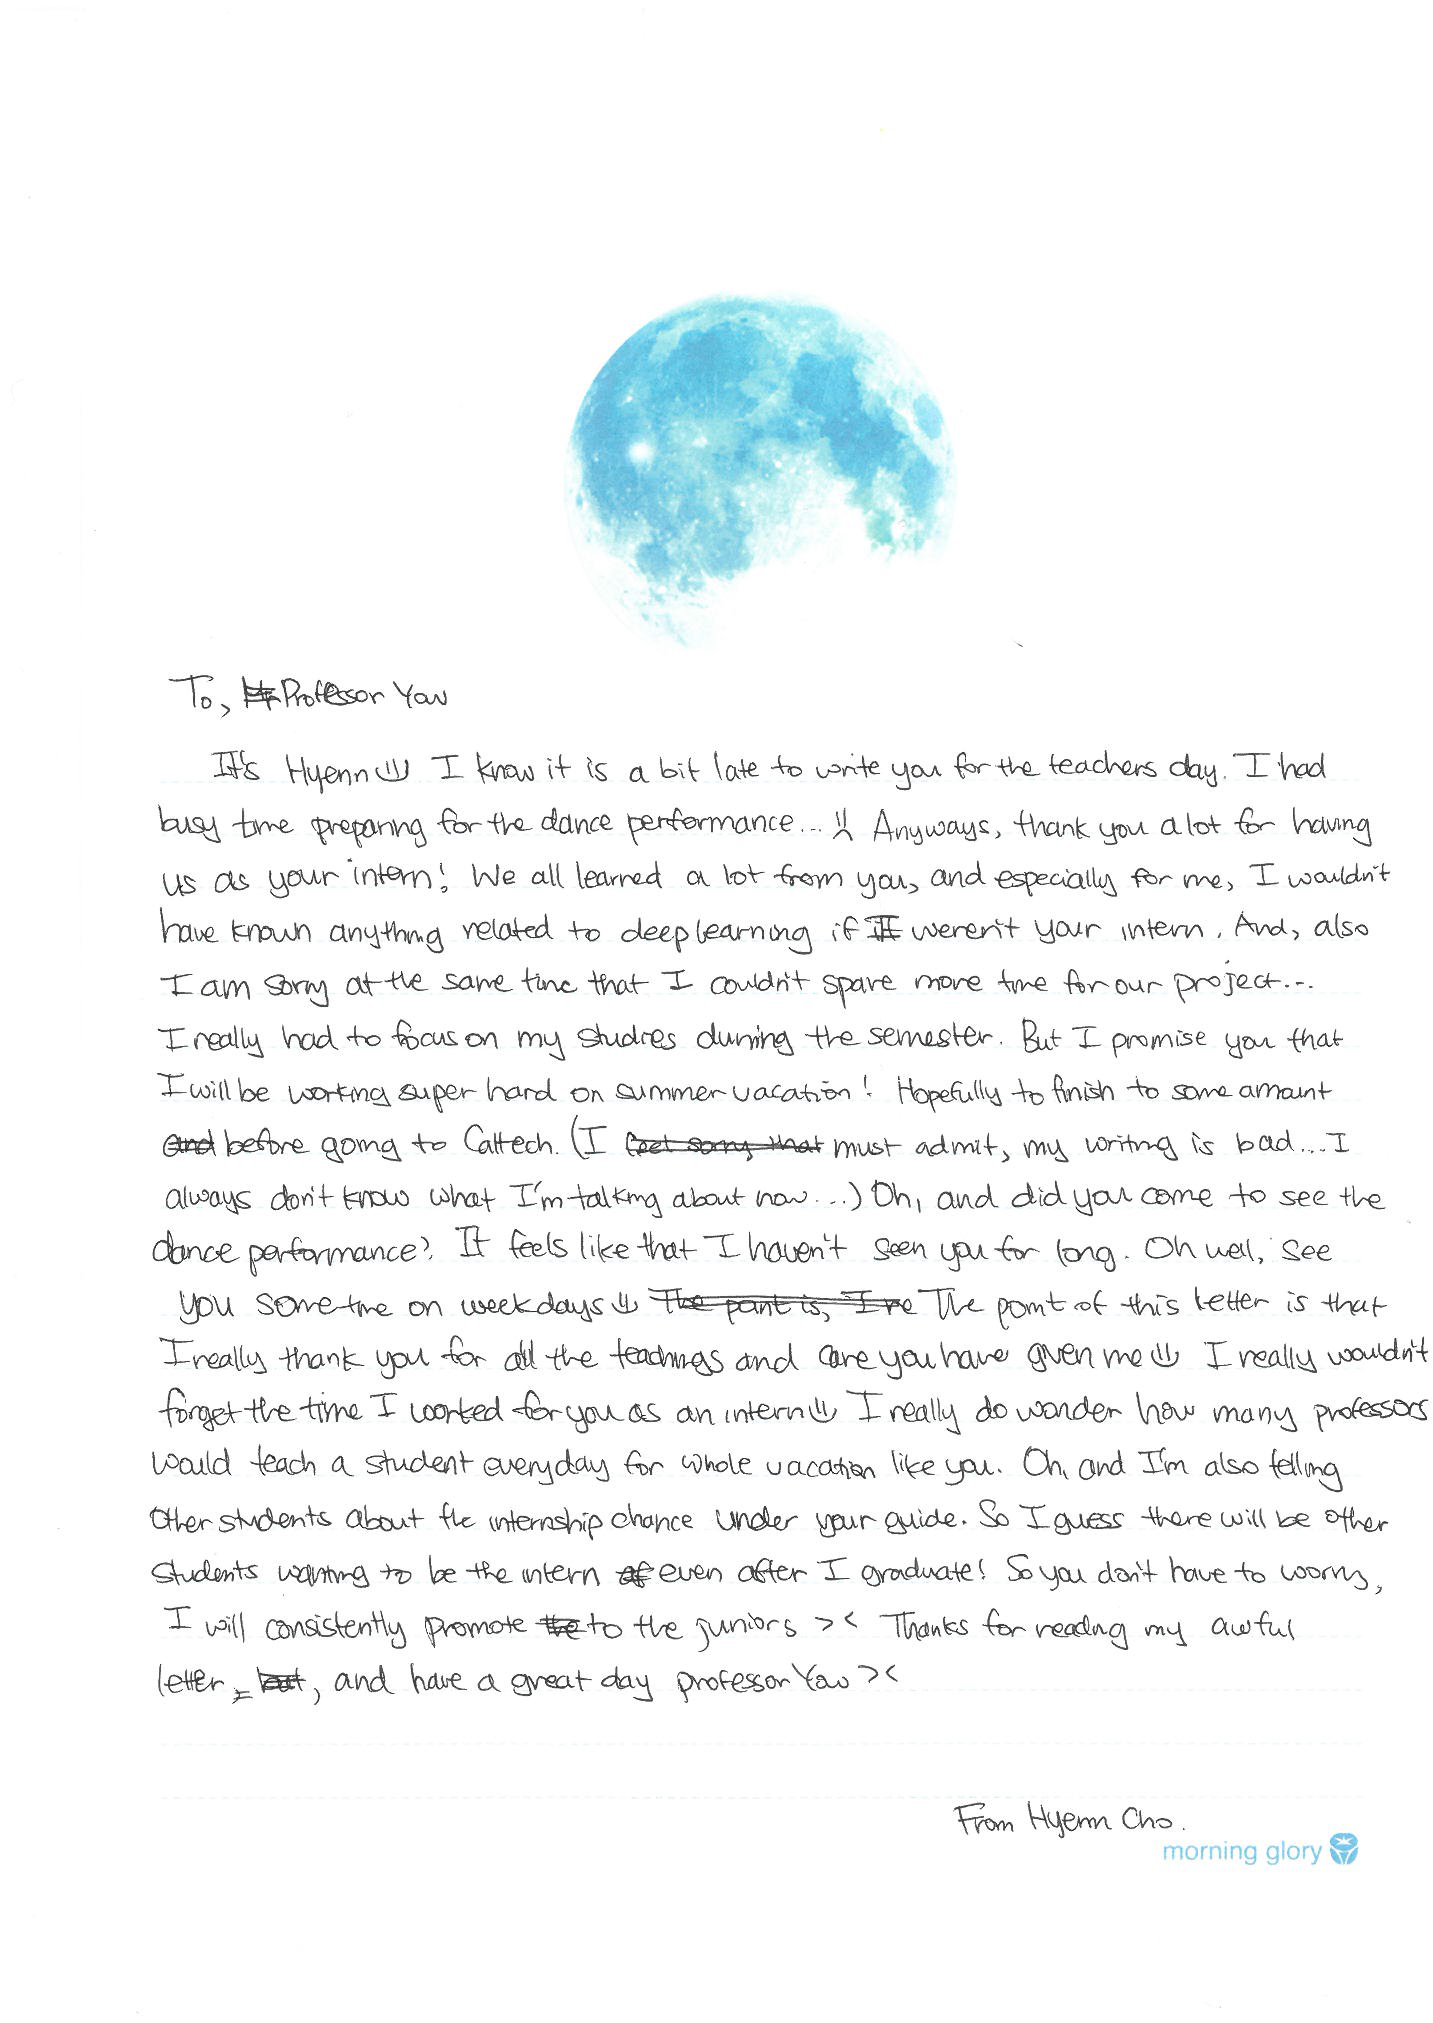 To, Professor You
It's Hyenn I know it is a bit late to write you for the teachers day. I had
busy time preparing for the dance performance... Anyways, thank you a lot for having
us as your intern! We all learned a lot from you, and especially for me, I wouldn't
have known anything related to deep learning if I weren't your intern. And, also
I am sorry at the same time that I couldn't spare more time for our project...
I really had to focus on my studies during the semester. But I promise you that
I will be working super hard on summer vacation! Hopefully to finish to some amount
before going to Caltech. (I must admit, my writing is bad... I
always don't know what I'm talking about now...) Oh, and did you come to see the
dance performance? It feels like that I haven't seen you for long. Oh well, see
you sometime on weekdays The point of this letter is that
I really thank you for all the teachings and care you have given me I really wouldn't
forget the time I worked for you as an intern I really do wonder how many professors
would teach a student everyday for whole vacation like you. Oh, and I'm also telling
other students about the internship chance under your guide. So I guess there will be other
students wanting to be the intern even after I graduate! So you don't have to worry,
I will consistently promote to the juniors >< Thanks for reading my awful
letter, and have a great day professor You ><
From Hyenn Cho.
morning glory